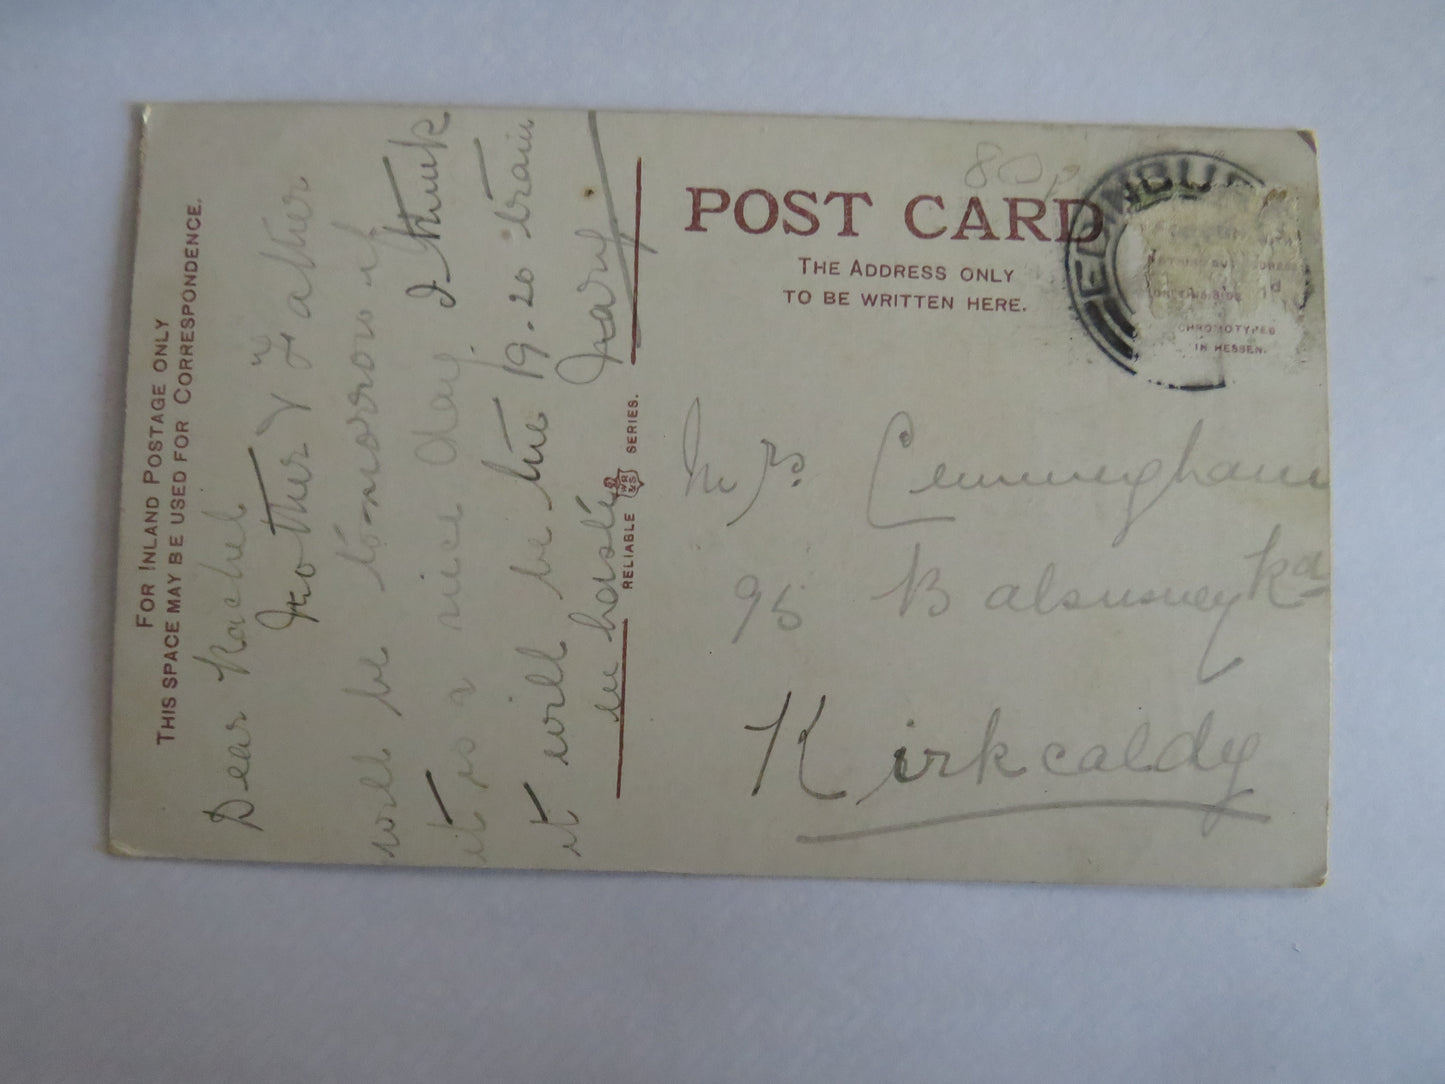 FOR INLAND POSTAGE ONLY
THIS SPACE MAY BE USED FOR CORRESPONDENCE.
Dear Rachel
Mother & Father
will be to-morrow if
it is a nice day. I think
it will be the 19.20 train
in haste
Mary
RELIABLE WR&S SERIES.
80p
POST CARD
THE ADDRESS ONLY
TO BE WRITTEN HERE.
EDINBU
1d
CHROMOTYPED
IN HESSEN.
Mrs Cunningham
95 Balsusney Rd
Kirkcaldy